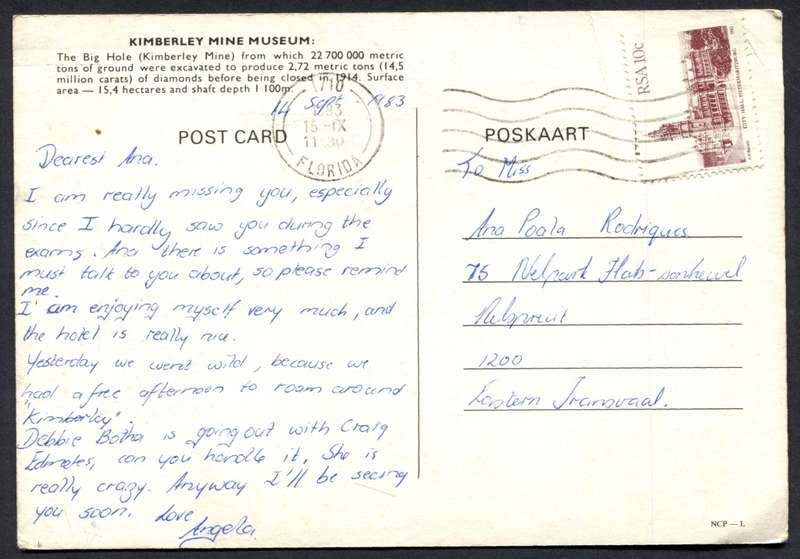 KIMBERLEY MINE MUSEUM:
The Big Hole (Kimberley Mine) from which 22 700 000 metric
tons of ground were excavated to produce 2,72 metric tons (14,5
million carats) of diamonds before being closed in 1914. Surface
area — 15,4 hectares and shaft depth 1 100m.
14 Sept - 1983
POST CARD
Dearest Ana.
I am really missing you, especially
since I hardly saw you during the
exams. Ana there is something I
must talk to you about, so please remind
me.
I am enjoying myself very much, and
the hotel is really nice.
Yesterday we went wild, because we
had a free afternoon to roam around
"Kimberley".
Debbie Botha is going out with Craig
can you handle it, She is
really crazy. Anyway I'll be seeing
you soon. Love
Angela.
1710
83
15 -IX
11 30
FLORIDA
RSA 10c
CITY HALL, PIETERMARITZBURG
POSKAART
To Miss
Ana Poala Rodrigues
75 Nelpark Flats-
Nelspruit
1200
Eastern Transvaal.
NCP — L